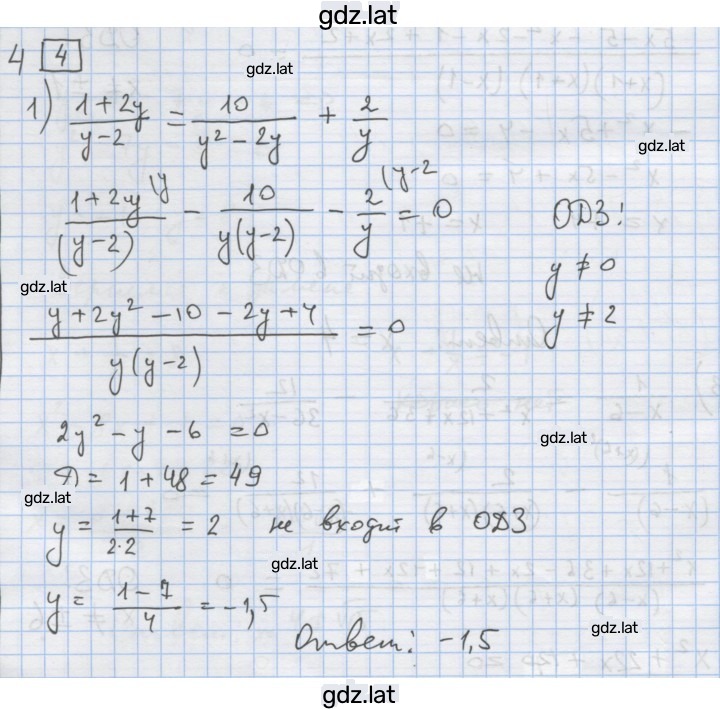 gdz.lat
4 4
gdz.lat
1) (1+2y)/(y-2) = 10/(y² - 2y) + 2/y
gdz.lat
(1+2y\y)/((y-2)) - 10/(y(y-2)) - 2/y (y-2 = 0
ОДЗ!
y ≠ 0
gdz.lat
y ≠ 2
(y + 2y² - 10 - 2y + 4)/(y(y-2)) = 0
2y² - y - 6 = 0
gdz.lat
Д = 1 + 48 = 49
gdz.lat
y = (1+7)/(2·2) = 2 не входит в ОДЗ
gdz.lat
y = (1-7)/4 = -1,5
gdz.lat
Ответ: -1,5
gdz.lat